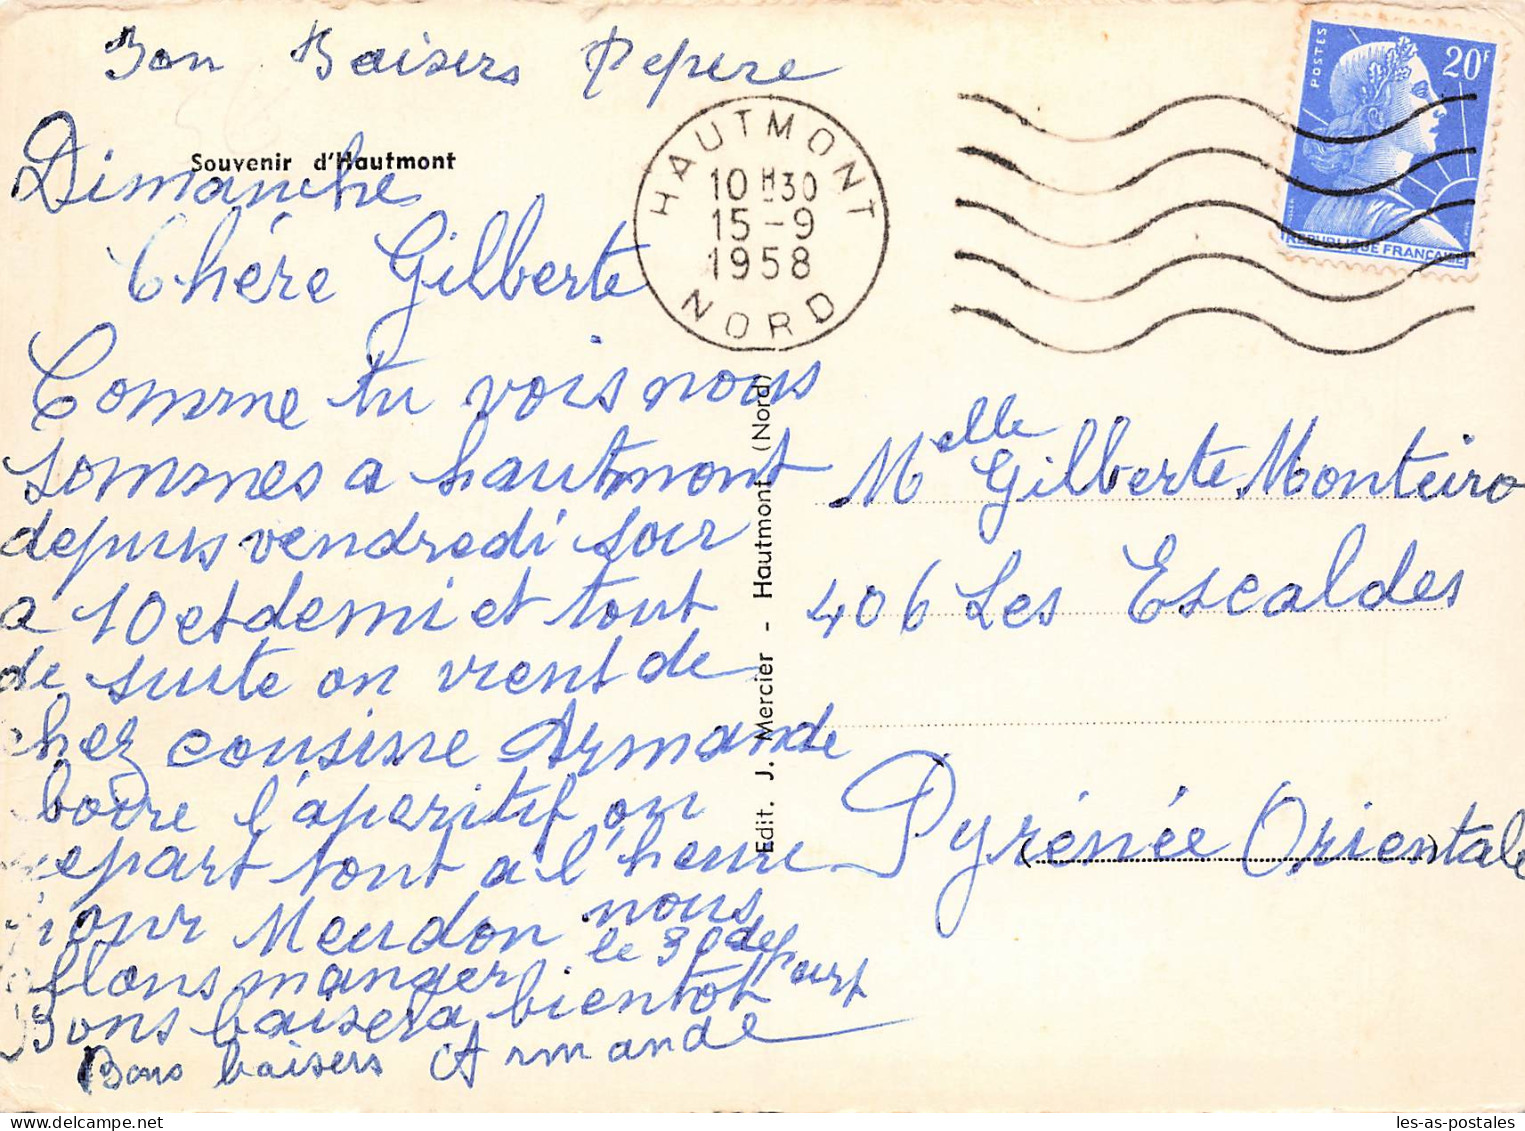 Bon Baisers Pepere
Souvenir d'Hautmont
Dimanche
Chére Gilberte
Comme tu vois nous
sommes a hautmont
depuis vendredi soir
a 10 et demi et tout
de suite on vient de
chez cousine Armande
boire l'aperitif on
repart tout a l'heure
pour Meudon nous
allons manger. le 30 depart
Bons baisers a bientôt
Bons baisers Armande
HAUTMONT
10 H 30
15-9
1958
NORD
POSTES
20F
REPUBLIQUE FRANÇAISE
Edit. J. Mercier - Hautmont (Nord)
Melle Gilberte Monteiro
406 Les Escaldes
Pyrénée Orientale
les-as-postales